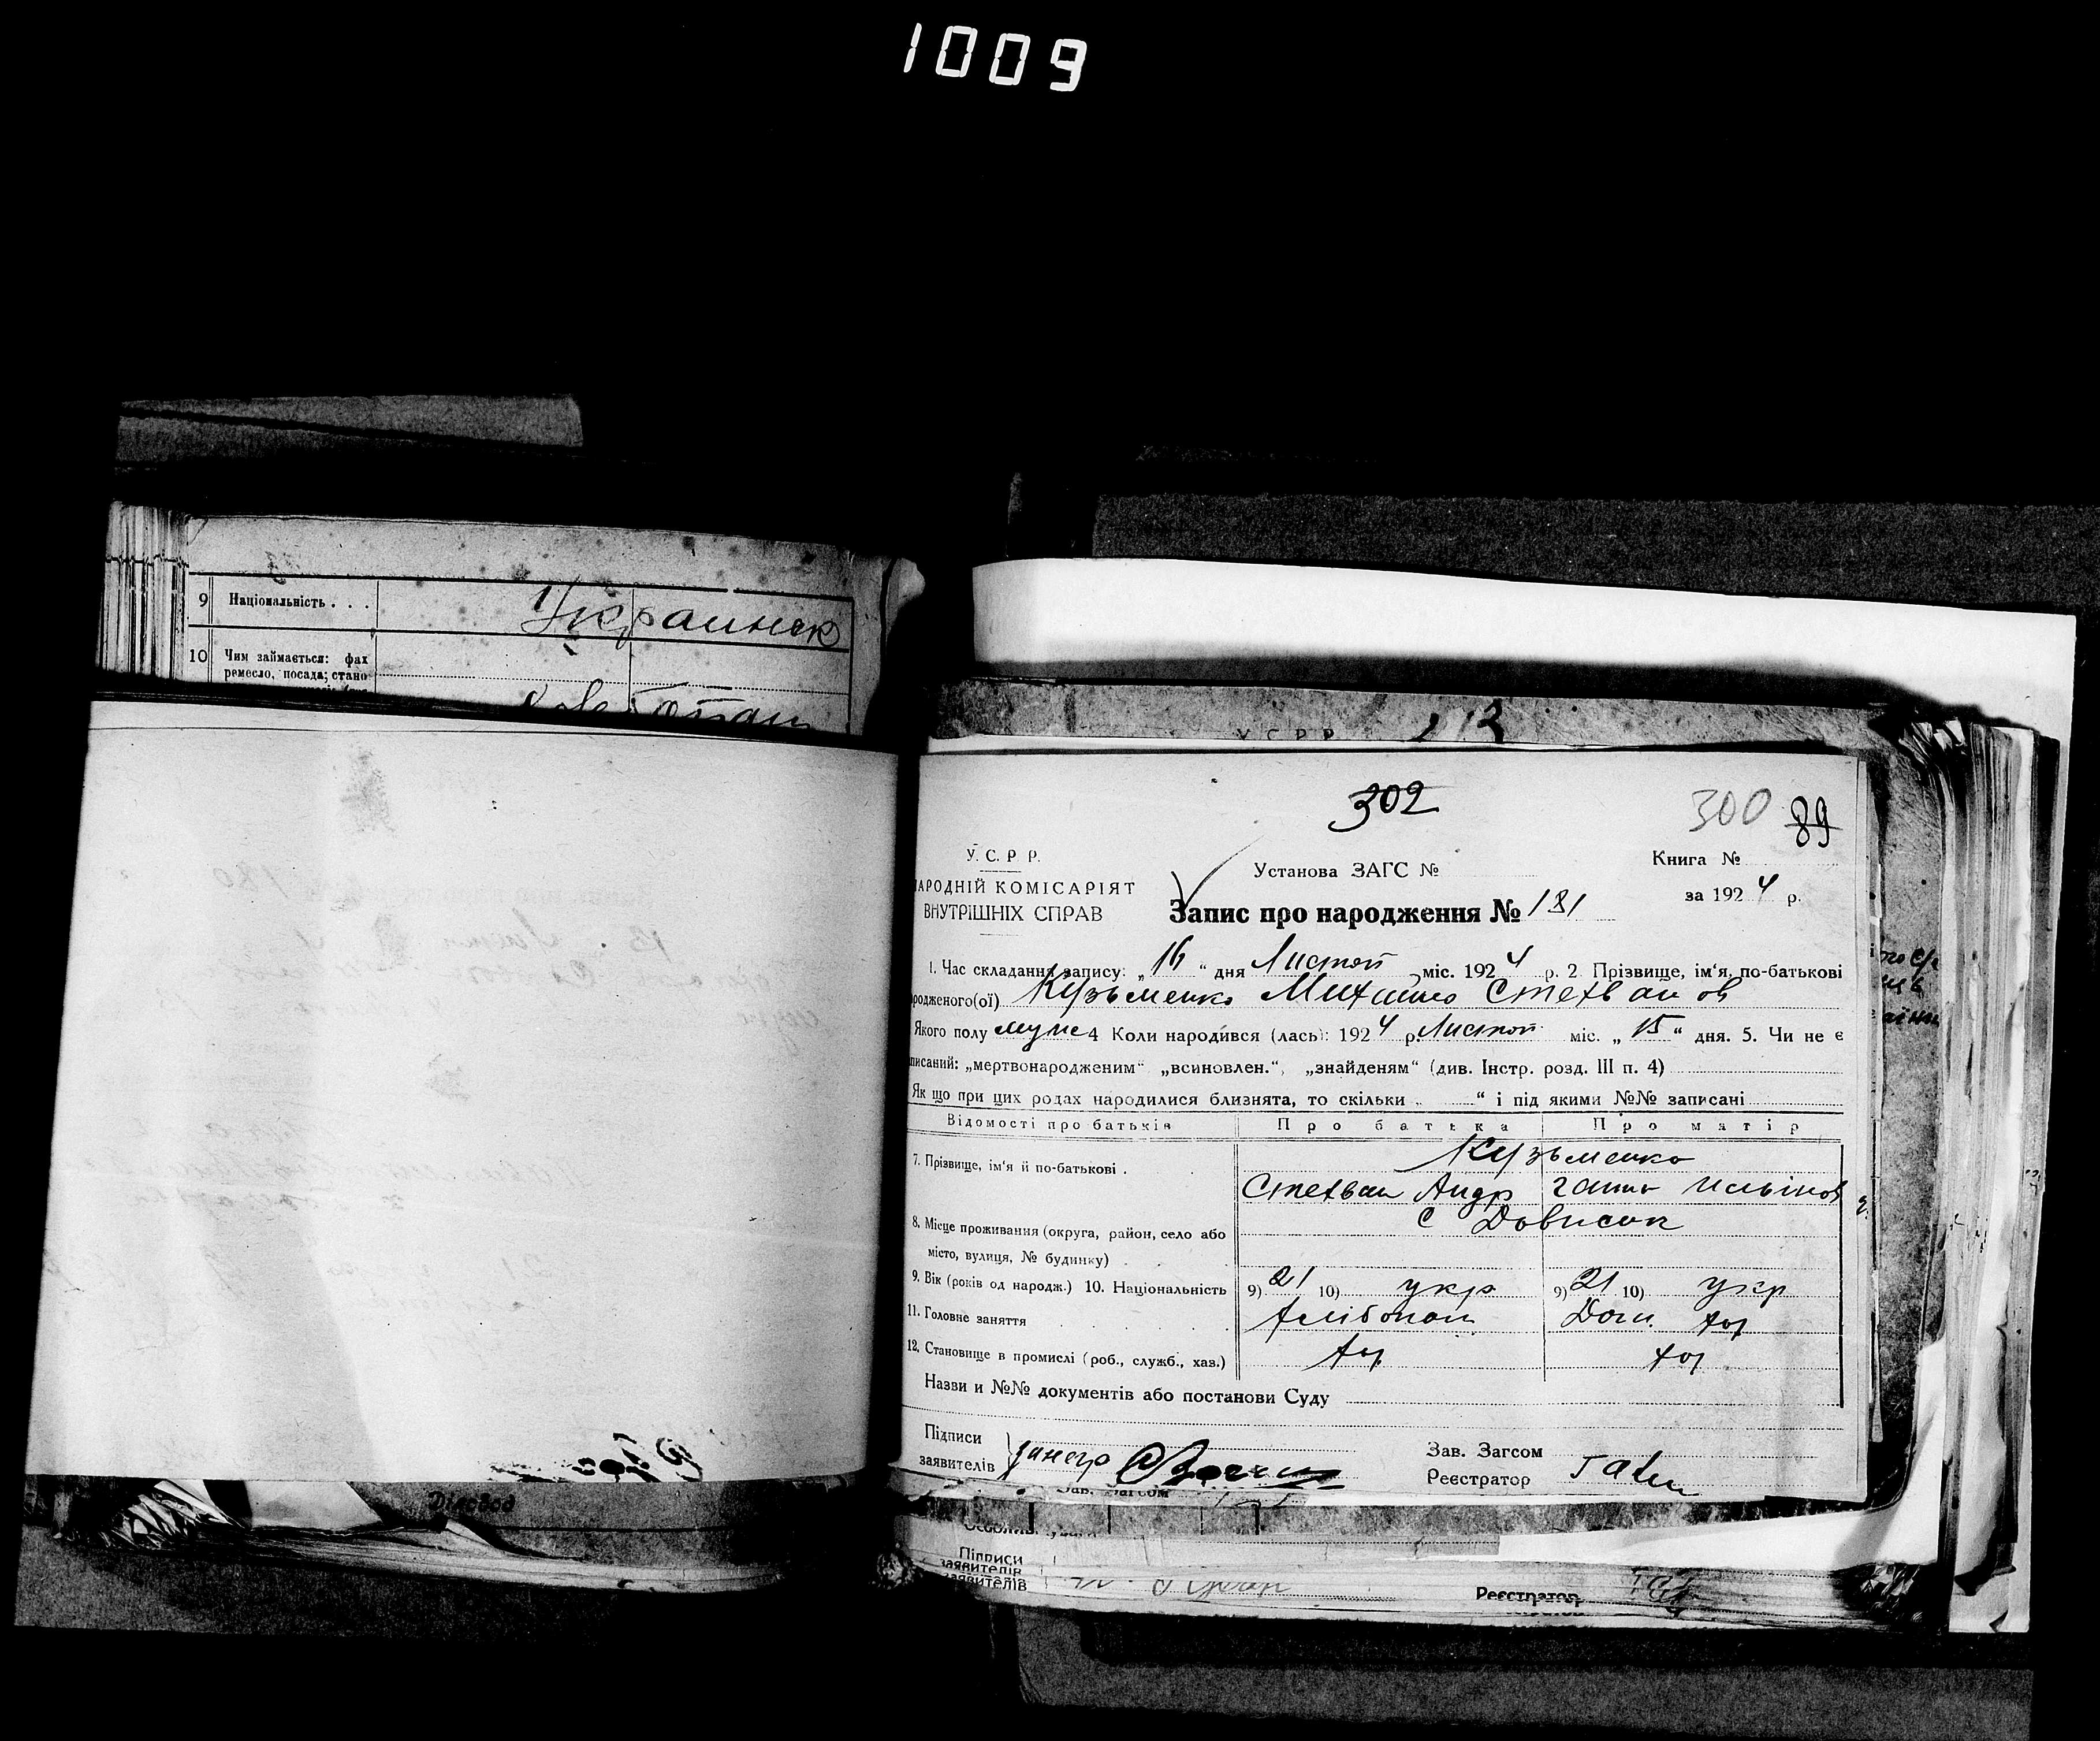 1009
9 Національність . . .
Украинск
10 Чим займається: фах
ремесло, посада; стано
Діловод
У С Р Р
302
300 89
У. С. Р Р.
Установа ЗАГС №
Книга №
АРОДНІЙ КОМІСАРІЯТ
за 1924 р.
ВНУТРІШНІХ СПРАВ
Запис про народження № 181
1. Час складання запису: „16“ дня Листоп міс. 1924 р. 2 Прізвище, ім‘я, по-батькові
родженого(ої) Кузьменко Михаило Стехванов
Якого полу муже 4 Коли народи́вся (лась): 1924 р. Листоп міс. „15“ дня. 5. Чи не є
писаний: „мертвонародженим“ „всиновлен.“, „знайденям“ (див. Інстр. розд. III п. 4)
Як що при цих родах народилися близнята, то скільки „ “ і під якими №№ записані
Відомості про батьків Про батька Про матір
7. Прізвище, ім‘я й по-батькові . Кузьменко
Стехван Андр Ганна Ильінов
8. Місце проживання (округа, район, село або с Довисок
місто, вулиця, № будинку)
9. Вік (років од народж.) 10. Національність 9) 21 10) укр 9) 21 10) укр
11. Головне заняття хлібопаш Дом. хоз
12. Становище в промислі (роб., служб., хаз.) хоз хоз
Назви и №№ документів або постанови Суду
Підписи
заявителів
Зав. Загсом
Реєстратор
Зав. Загсом
Підписи
заявителів
заявителів
Реєстратор